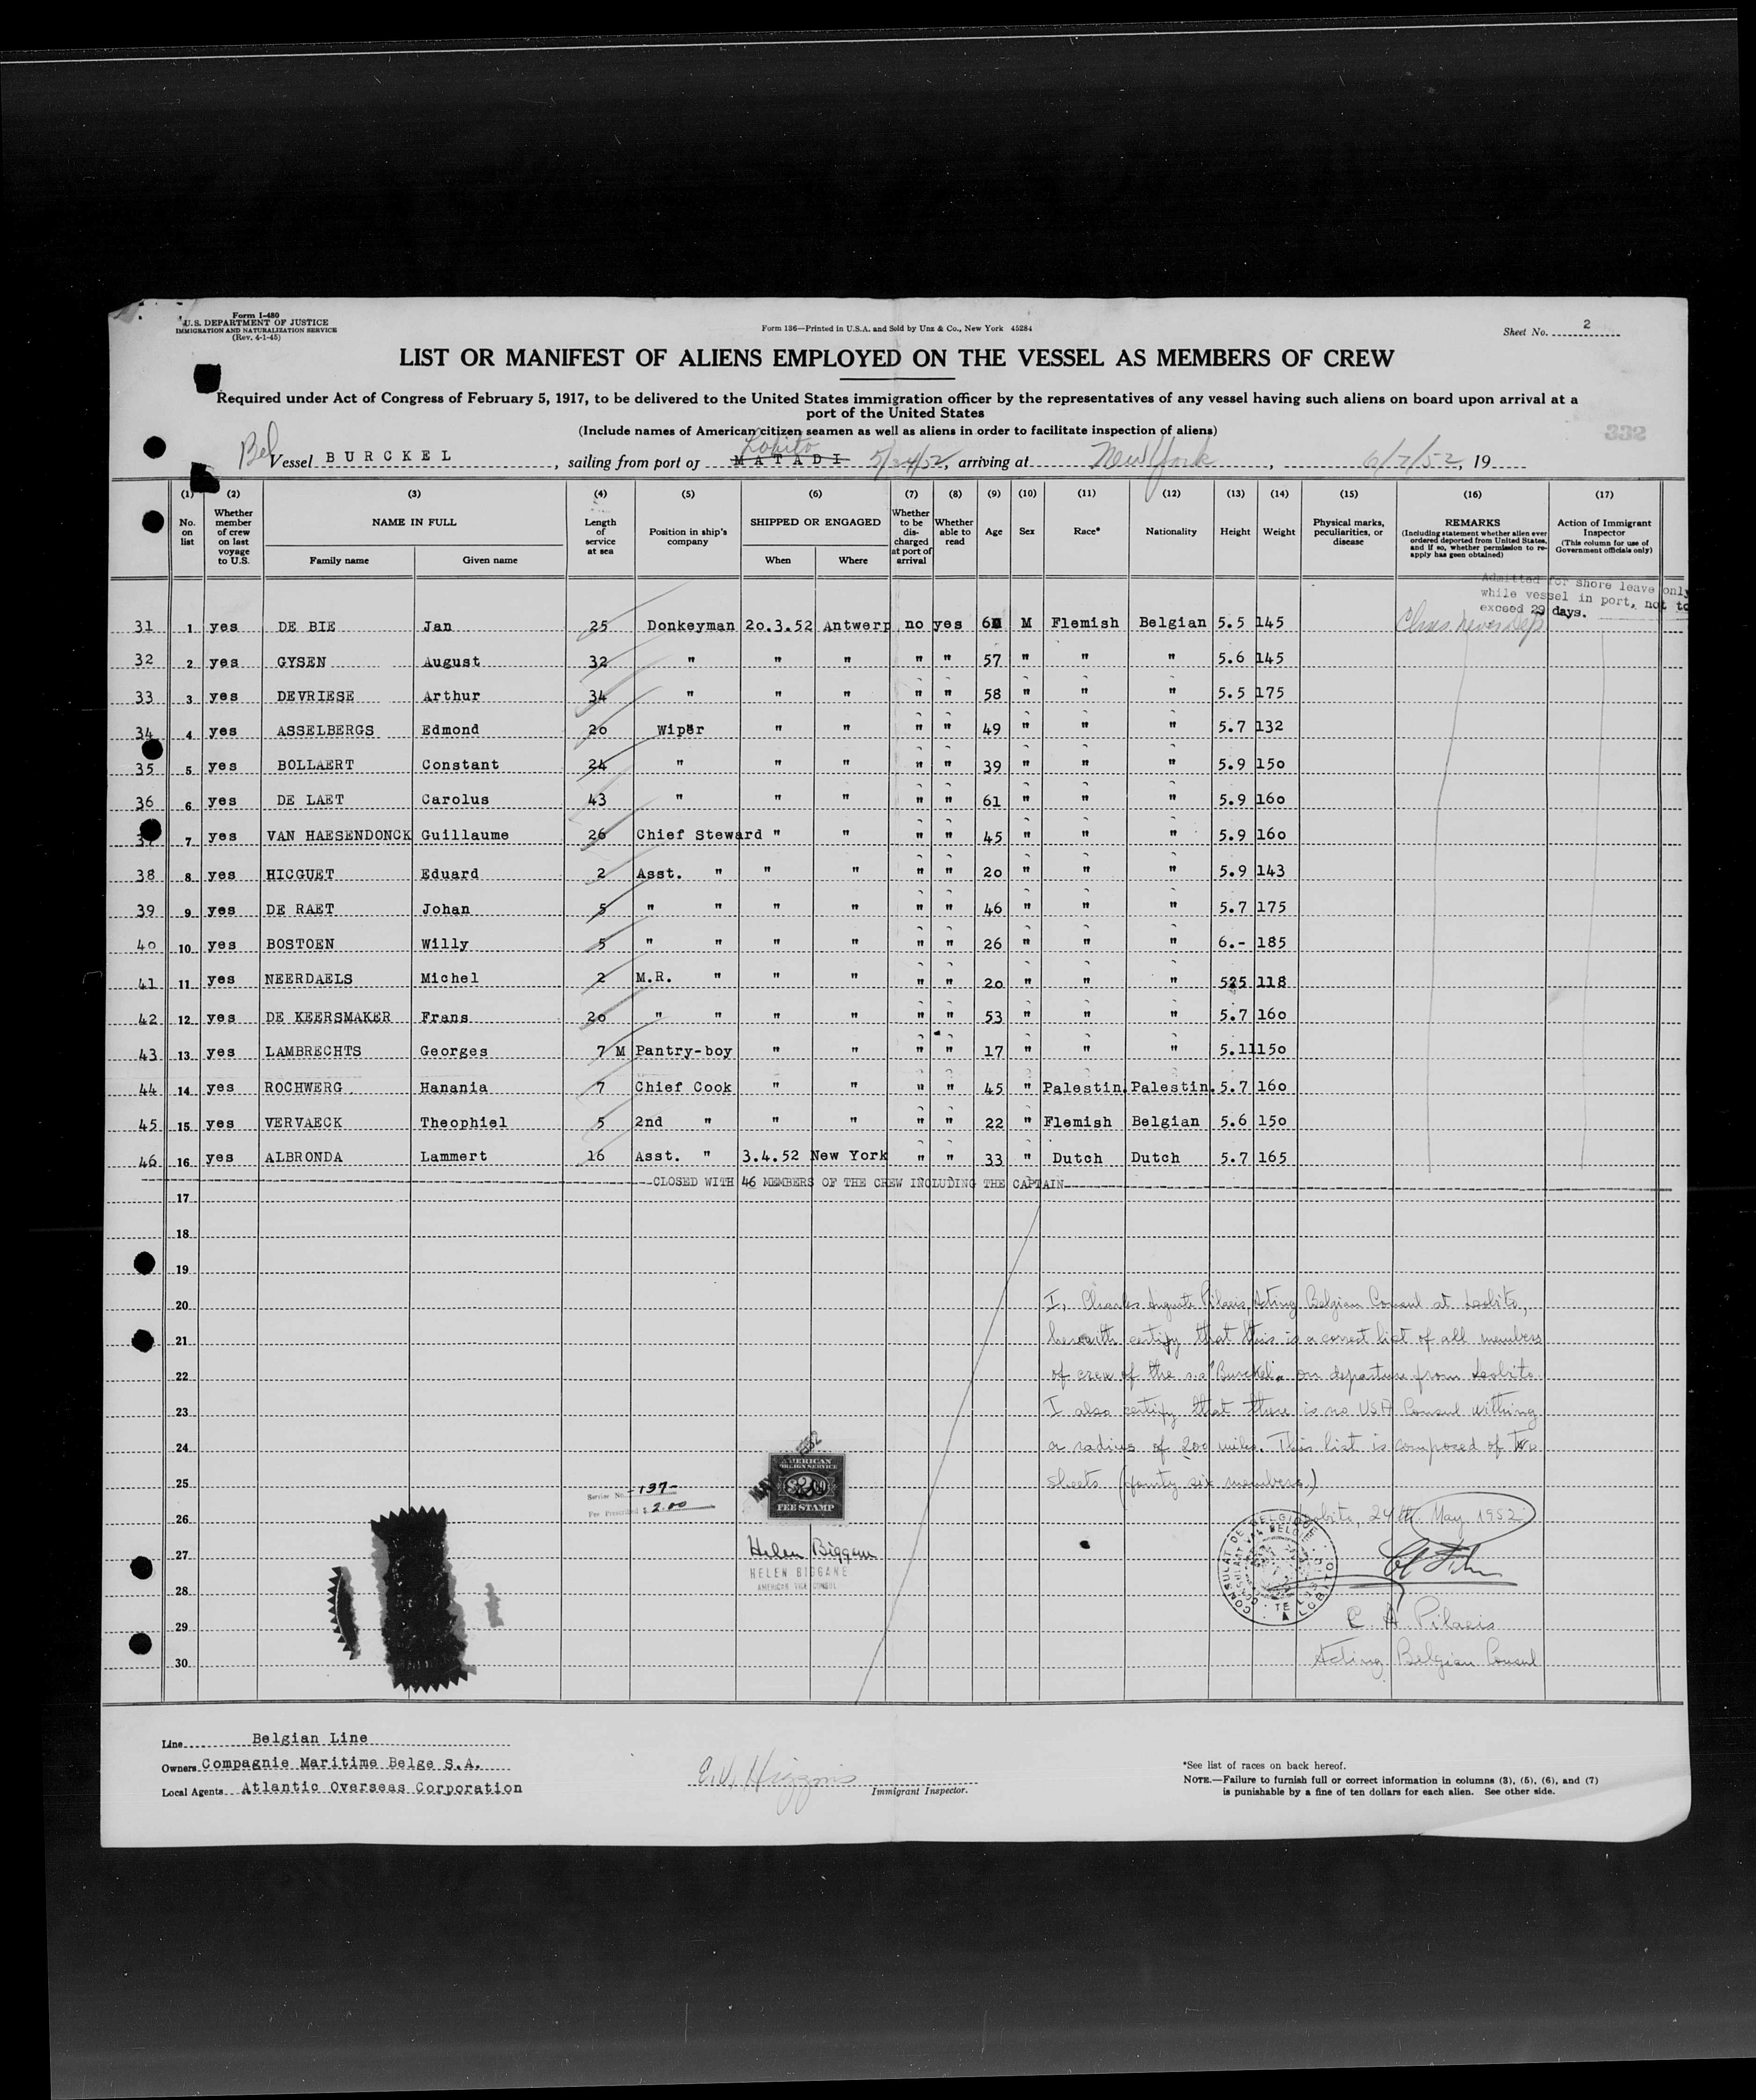 Form I-480
U.S. DEPARTMENT OF JUSTICE
IMMIGRATION AND NATURALIZATION SERVICE
(Rev. 4-1-45)
Form 136—Printed in U.S.A. and Sold by Unz & Co., New York 45284
Sheet No. 2
LIST OR MANIFEST OF ALIENS EMPLOYED ON THE VESSEL AS MEMBERS OF CREW
Required under Act of Congress of February 5, 1917, to be delivered to the United States immigration officer by the representatives of any vessel having such aliens on board upon arrival at a
port of the United States
(Include names of American citizen seamen as well as aliens in order to facilitate inspection of aliens)
332
Bel Vessel BURCKEL, sailing from port of MATADI Lobito 5/24/52, arriving at New York, 6/7/52, 19
(1) No. on list (2) Whether member of crew on last voyage to U.S. (3) NAME IN FULL Family name Given name (4) Length of service at sea (5) Position in ship's company (6) SHIPPED OR ENGAGED When Where (7) Whether to be discharged at port of arrival (8) Whether able to read (9) Age (10) Sex (11) Race* (12) Nationality (13) Height (14) Weight (15) Physical marks, peculiarities, or disease (16) REMARKS (Including statement whether alien ever ordered deported from United States, and if so, whether permission to re-apply has been obtained) (17) Action of Immigrant Inspector (This column for use of Government officials only)
Admitted for shore leave only
while vessel in port, not to
exceed 29 days.
31 1 yes DE BIE Jan 25 Donkeyman 20.3.52 Antwerp no yes M Flemish Belgian 5.5 145
32 2 yes GYSEN August 32 " " " " " 57 " " " 5.6 145
33 3 yes DEVRIESE Arthur 34 " " " " " 58 " " " 5.5 175
34 4 yes ASSELBERGS Edmond 20 Wiper " " " " 49 " " " 5.7 132
35 5 yes BOLLAERT Constant 24 " " " " " 39 " " " 5.9 150
36 6 yes DE LAET Carolus 43 " " " " " 61 " " " 5.9 160
37 7 yes VAN HAESENDONCK Guillaume 26 Chief Steward " " " " 45 " " " 5.9 160
38 8 yes HICGUET Eduard 2 Asst. " " " " " 20 " " " 5.9 143
39 9 yes DE RAET Johan 5 " " " " " " 46 " " " 5.7 175
40 10 yes BOSTOEN Willy 5 " " " " " " 26 " " " 6.- 185
41 11 yes NEERDAELS Michel 2 M.R. " " " " " 20 " " " 5.5 118
42 12 yes DE KEERSMAKER Frans 20 " " " " " " 53 " " " 5.7 160
43 13 yes LAMBRECHTS Georges 7 M Pantry-boy " " " " 17 " " " 5.11 150
44 14 yes ROCHWERG Hanania 7 Chief Cook " " " " 45 " Palestin. Palestin. 5.7 160
45 15 yes VERVAECK Theophiel 5 2nd " " " " " 22 " Flemish Belgian 5.6 150
46 16 yes ALBRONDA Lammert 16 Asst. " 3.4.52 New York " " 33 " Dutch Dutch 5.7 165
CLOSED WITH 46 MEMBERS OF THE CREW INCLUDING THE CAPTAIN
17
18
19
20 I, Charles Auguste Pilaeis, Acting Belgian Consul at Lobito,
21 herewith certify that this is a correct list of all members
22 of crew of the s.s "Burckel" on departure from Lobito.
23 I also certify that there is no USA Consul withing
24 a radius of 200 miles. This list is composed of two
25 sheets (fourty six members.)
AMERICAN FOREIGN SERVICE $2.00 FEE STAMP
Service No. -137-
Fee Prescribed $ 2.00
26 Lobito, 24th May 1952
27 Helen Biggane
HELEN BIGGANE
AMERICAN VICE CONSUL
28
CONSULAT DE BELGIQUE LOBITO
29 C. A. Pilaeis
30 Acting Belgian Consul
Line Belgian Line
Owners Compagnie Maritime Belge S.A.
Local Agents Atlantic Overseas Corporation
E.V. Higgins
Immigrant Inspector.
*See list of races on back hereof.
NOTE.—Failure to furnish full or correct information in columns (3), (5), (6), and (7)
is punishable by a fine of ten dollars for each alien. See other side.